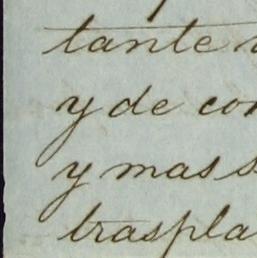 tante
y de con
y mas s
traspla